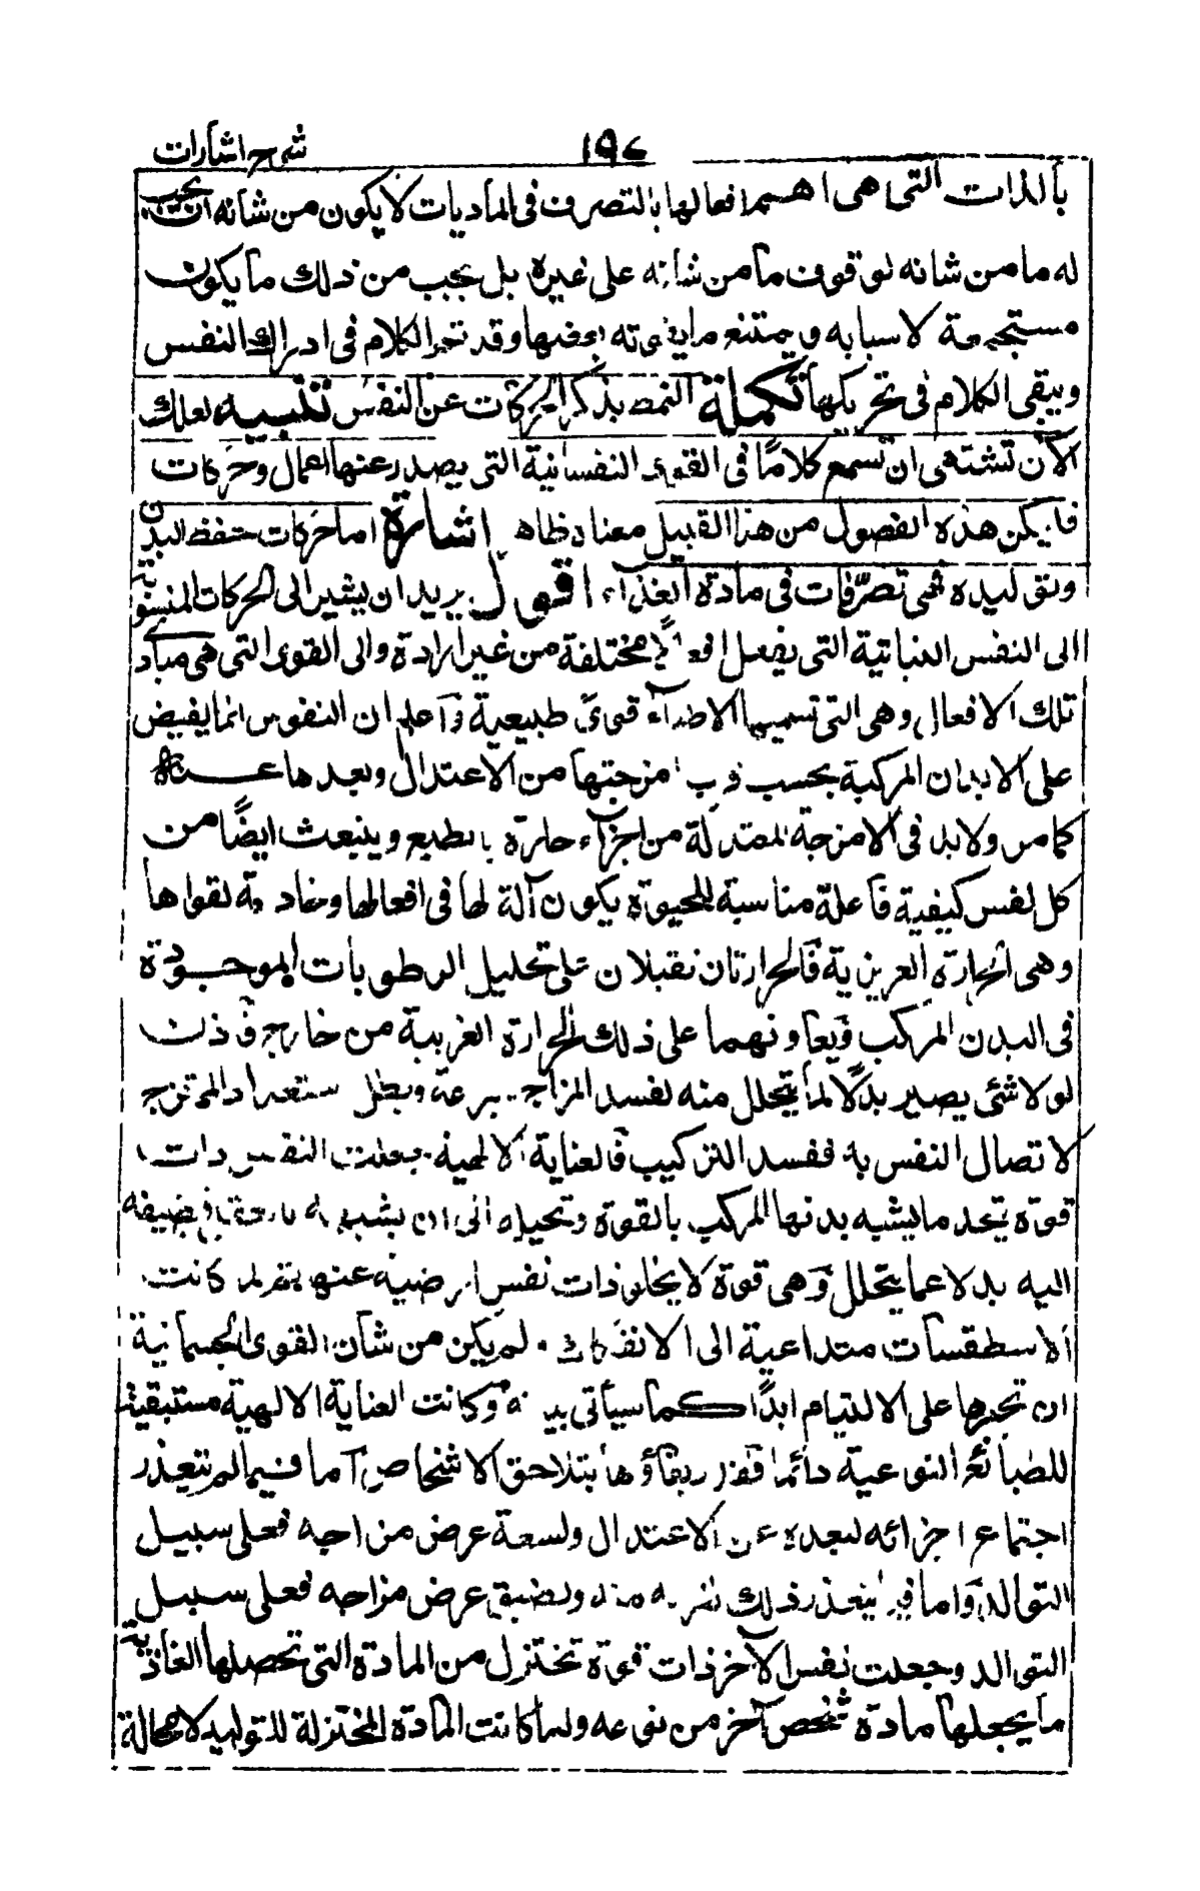 شرح اشارات
١٩٤
بالذات التي هي اهم افعالها بالتصرف في الماديات لا يكون من شانه ان يجب
له ما من شانه لوقوف ما من شانه على غيره بل يجب من ذلك ما يكون
مستجمعة لاسبابه ويمتنع ما يفوته بعضها وقد تم الكلام في ادراك النفس
ويبقى الكلام في تحريكها تكملة النمط بذكر الحركات عن النفس تنبيه لعلك
الآن تشتهي ان تسمع كلاما في القوى النفسانية التي يصدر عنها اعمال وحركات
فليكن هذه الفصول من هذا القبيل معناه ظاهر اشارة اما حركات حفظ البدن
وتوليده فهي تصرّفات في مادة الغذاء اقول يريد ان يشير الى الحركات المنسوبة
الى النفس النباتية التي يفعل افعالا مختلفة من غير ارادة والى القوى التي هي مبادى
تلك الافعال وهي التي تسميها الاطباء قوىً طبيعية واعلم ان النفوس انما يفيض
على الابدان المركبة بحسب قرب امزجتها من الاعتدال وبعدها عنه
كما مر ولا بد في الامزجة المعتدلة من اجزاء حارة بالطبع وينبعث ايضًا من
كل نفس كيفية فاعلة مناسبة للحيوة يكون آلة لها في افعالها وخادمة لقواها
وهي الحرارة الغريزية فالحرارتان تقبلان على تحليل الرطوبات الموجودة
في البدن المركب ويعاونهما على ذلك الحرارة الغريبة من خارج فاذن
لولا شئ يصير بدلًا لما يتحلل منه لفسد المزاج بسرعة وبطل استعداد الممتزج
لاتصال النفس به ففسد التركيب فالعناية الالهية جعلت النفس ذات
قوة تجد ما يشبه بدنها المركب بالقوة وتحيله الى ان يشبهه بالفعل فيضيفه
اليه بدلا عما يتحلل وهي قوة لا يخلو ذات نفس ارضية عنها ثم لما كانت
الاسطقسات متداعية الى الانفكاك ولم يكن من شان القوى الجسمانية
ان تجبرها على الالتيام ابدًا كما سيأتي بيانه وكانت العناية الالهية مستبقية
للطبائع النوعية دائما فقدر بقاؤها بتلاحق الاشخاص اما فيما لم يتعذر
اجتماع اجزائه لبعده عن الاعتدال ولسعة عرض مزاجه فعلى سبيل
التوالد واما فيما يتعذر ذلك لقربه منه ولضيق عرض مزاجه فعلى سبيل
التوالد وجعلت نفس الآخر ذات قوة تختزل من المادة التي تحصلها الغاذية
ما يجعلها مادة شخص آخر من نوعه ولما كانت المادة المختزلة للتوليد لا محالة